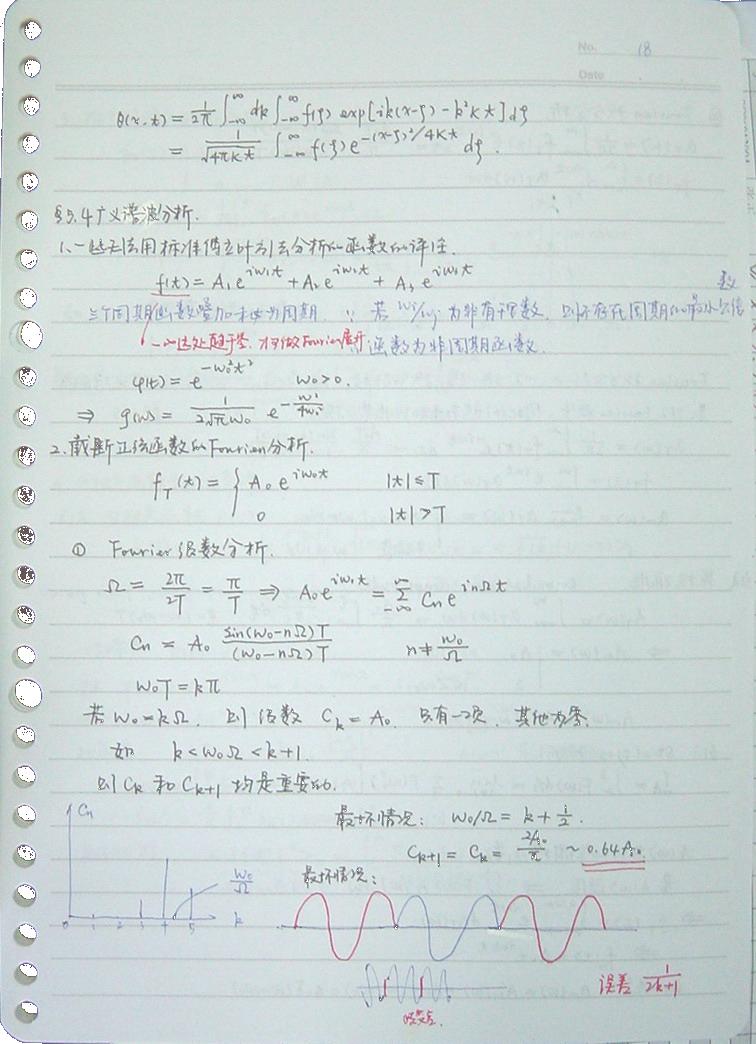 No. 18
Date
θ(x,t) = 1/2π ∫_{-∞}^{∞} dk ∫_{-∞}^{∞} f(ζ) exp[ik(x-ζ) - k²Kt] dζ
= 1/√(4πKt) ∫_{-∞}^{∞} f(ζ) e^{-(x-ζ)²/4Kt} dζ.
§5.4 广义谐波分析.
1. 一些无法用标准傅立叶方法分析的函数的评注.
f(t) = A₁e^{iω₁t} + A₂e^{iω₂t} + A₃e^{iω₃t}
三个周期函数叠加未必为周期. ∵ 若 ωi/ωj 为非有理数, 则不存在周期的最小公倍数
无远处趋于零, 才可做Fourier展开 函数为非周期函数.
φ(t) = e^{-ω₀²t²} ω₀>0.
⇒ g(ω) = 1/(2√π ω₀) e^{-ω²/4ω₀²}
2. 截断正弦函数的Fourier分析.
f_T(t) = { A₀e^{iω₀t} |t|≤T
0 |t|>T
① Fourier级数分析.
Ω = 2π/2T = π/T ⇒ A₀e^{iω₀t} = Σ_{-∞}^{∞} Cn e^{inΩt}
Cn = A₀ sin(ω₀-nΩ)T/(ω₀-nΩ)T n≠ω₀/Ω
ω₀T = kπ
若 ω₀=kΩ, 则 级数 C_k = A₀. 只有一项, 其他为零.
如 k<ω₀Ω<k+1.
则 C_k 和 C_{k+1} 均是重要的.
最坏情况: ω₀/Ω = k+1/2.
C_{k+1} = C_k = 2A₀/π ~ 0.64A₀.
Cn
ω₀/Ω
0 1 2 3 4 5 k
最坏情况:
误差 1/(2k+1)